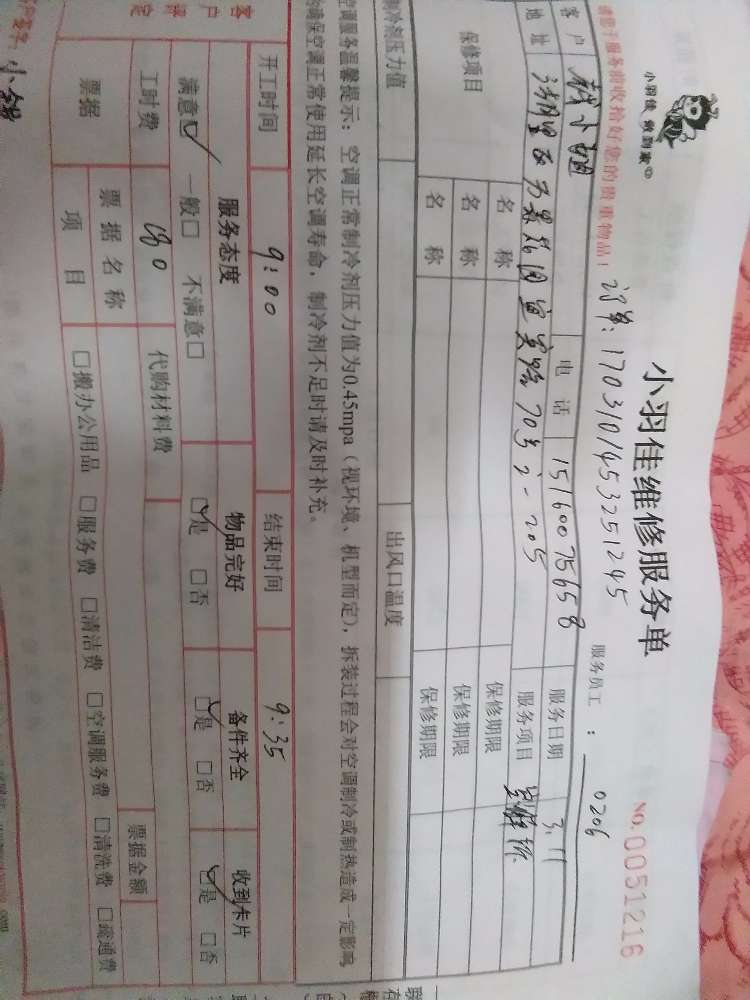 小羽佳 做到家
小羽佳维修服务单
NO.0051216
请您于服务前收拾好您的贵重物品!
订单: 170310145325 1245
服务员工: 0206
客户 小姐 电话 15160075658 服务日期 3.11
地址 70号 2-205 服务项目
保修项目
名称 保修期限
名称 保修期限
名称 保修期限
制冷剂压力值 出风口温度
空调服务温馨提示: 空调正常制冷剂压力值为0.45mpa(视环境、机型而定), 拆装过程会对空调制冷或制热造成一定影响
确保空调正常使用延长空调寿命, 制冷剂不足时请及时补充。
开工时间 9:00 结束时间 9:35
客户评定
服务态度 物品完好 备件齐全 收到卡片
满意☑ 一般□ 不满意□ ☑是 □否 ☑是 □否 ☑是 □否
工时费 180 代购材料费
票据 票据名称 票据金额
项目 □搬办公用品 □服务费 □清洁费 □空调服务费 □清洗费 □疏通费